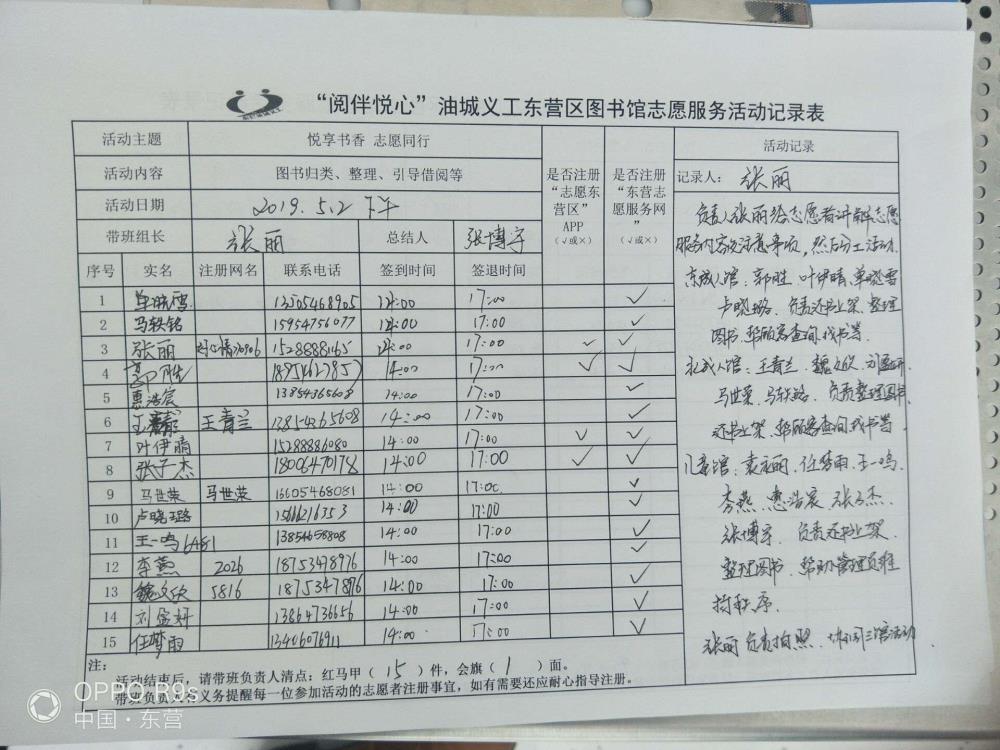 “阅伴悦心”油城义工东营区图书馆志愿服务活动记录表
活动主题 悦享书香 志愿同行
活动内容 图书归类、整理、引导借阅等
活动日期 2019.5.2 下午
带班组长 张丽 总结人 张博宇
是否注册“志愿东营区”APP（√或×）
是否注册“东营志愿服务网”（√或×）
序号 实名 注册网名 联系电话 签到时间 签退时间
1 单晓雪 13505468905 14:00 17:00 ✓
2 马轶铭 15954756077 14:00 17:00 ✓
3 张丽 1528888165 14:00 17:00 ✓ ✓
4 郭胜 14:00 17:00 ✓ ✓
5 惠浩宸 13854365608 14:00 17:00 ✓
6 王青兰 13854365608 14:00 17:00 ✓
7 叶伊晴 15288886080 14:00 17:00 ✓ ✓
8 张子杰 18006470178 14:00 17:00 ✓ ✓
9 马世荣 马世荣 13605468081 14:00 17:00 ✓
10 卢晓璐 14:00 17:00 ✓
11 王一鸣 6481 14:00 17:00 ✓
12 李燕 2026 18753478976 14:00 17:00 ✓
13 魏文欣 5816 18753478976 14:00 17:00 ✓
14 刘盈妍 13864736656 14:00 17:00 ✓
15 任梦雨 13406076911 14:00 17:00 ✓
注：
活动结束后，请带班负责人清点：红马甲（15）件，会旗（1）面。
带班负责人有义务提醒每一位参加活动的志愿者注册事宜，如有需要还应耐心指导注册。
活动记录
记录人： 张丽
负责人张丽给志愿者讲解志愿
服务内容及注意事项，然后分工活动.
东成人馆：郭胜、叶伊晴、单晓雪
卢晓璐、负责还书上架、整理
图书、帮顾客查询、找书等.
北成人馆：王青兰、魏文欣、刘盈妍
马世荣、马轶铭、负责整理图书、
还书上架、帮顾客查询、找书等
儿童馆：袁丽、任梦雨、王一鸣、
李燕、惠浩宸、张子杰、
张博宇、负责还书上架、
整理图书、帮助管理员维
持秩序.
张丽负责拍照、协调三馆活动
OPPO R9s
中国·东营